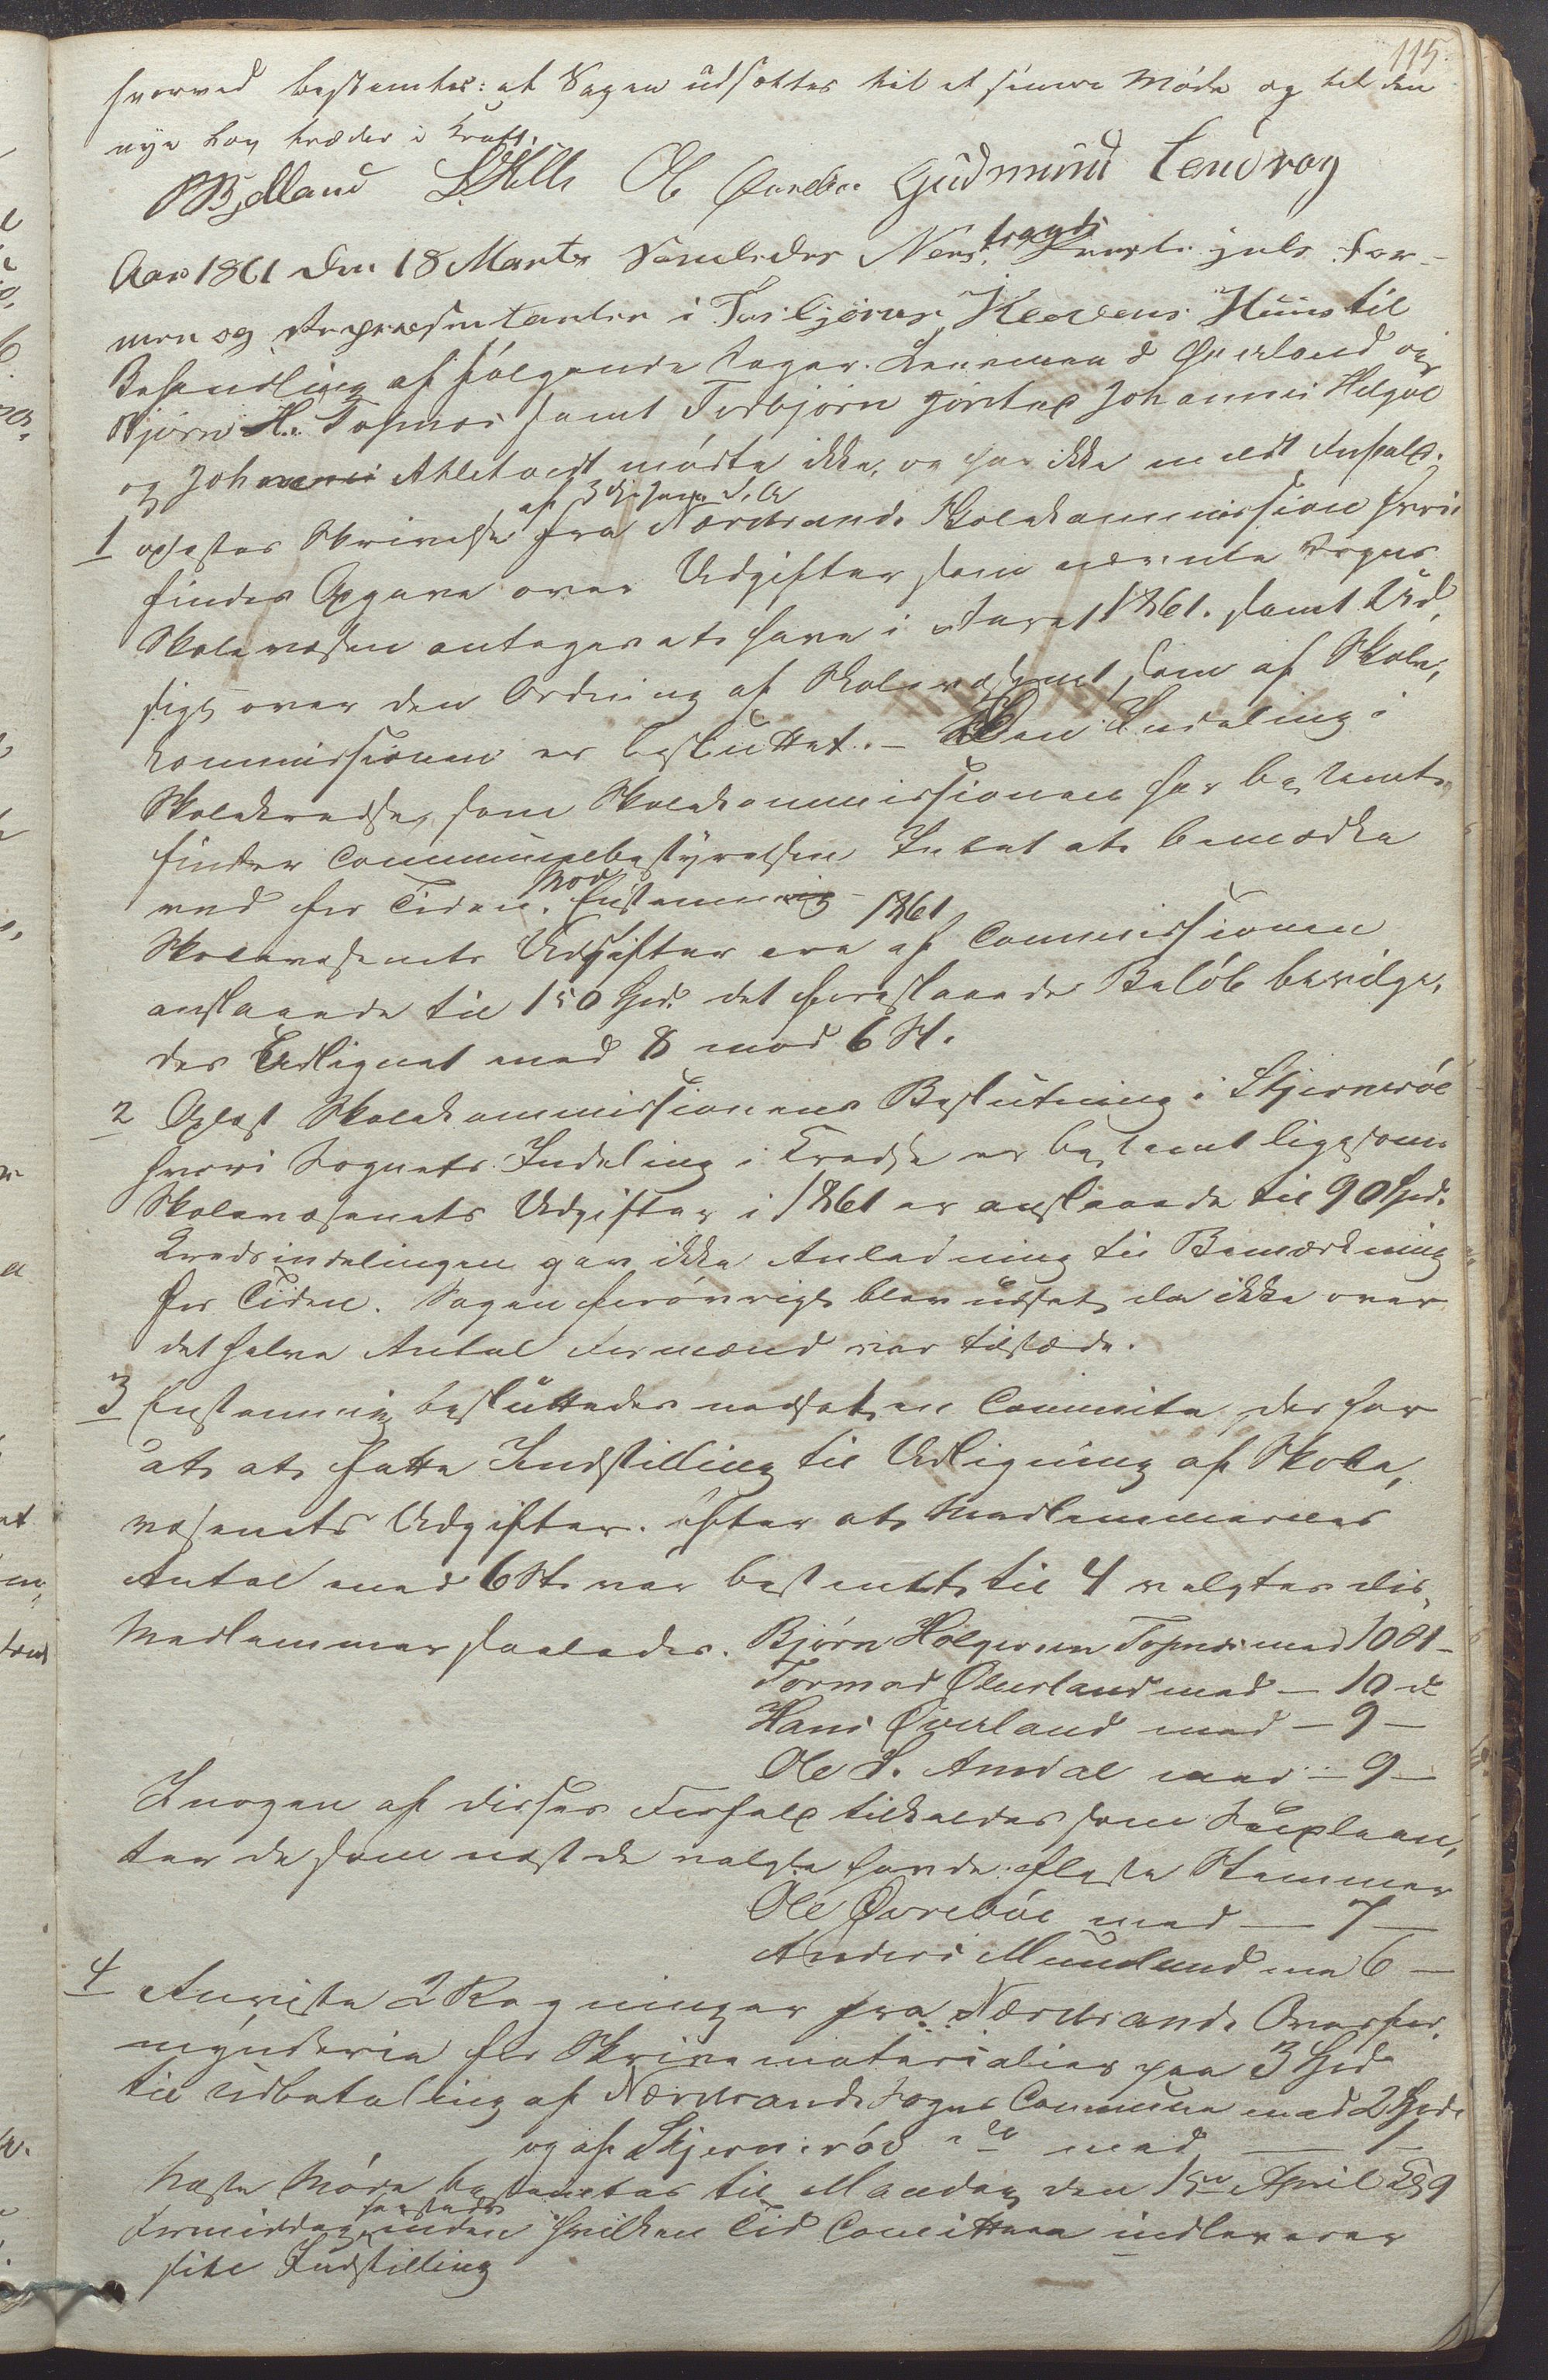 115.
hvorved bestemtes: at Sagen udsættes til et senere Møde og til den
nye Lov træder i Kraft.
Bjelland Ole Gudmund Tendrag
Aar 1861 den 18 Marts samledes Nerstrands Præstegjelds For-
mæn og Repræsentanter i Torbjørn Huus til
Behandling af følgende Sager. Lensmand Qverland og
Bjørn H. Tofsnæs samt Torbjørn Johannes Helgøe
og Johannes mødte ikke, og har ikke meldt Forfald.
1 oplæstes Skrivelse af 3die d. A. fra Nerstrands Skolekommission hvori
findes Opgave over Udgifter som nævnte Sogns
Skolevæsen antages at have i Aaret 1861. samt Ud,
sigt over den Ordning af Skolevæsenet som af Skole,
kommissionen er besluttet. – Den Indeling i
Skolekredse, som Skolekommissionen har bestemt,
finder Communebestyrelsen Intet at bemærke
ved for Tiden.
Skolevæsenets Udgifter 1861 ere af Commissionen
anslaaede til 150 Spd. det foreslaaede Beløb bevilge,
des Udlignet med 8 mod 6 St.
2 Oplæst Skolekommissionens Beslutning i Skjernerøe
hvori Sognets Indeling i Kredse er bestemt ligesom
Skolevæsenets Udgifter i 1861 er anslaaede til 90 Spd.
Kredsindelingen gav ikke Anledning til Bemærkning
for Tiden. Sagen forøvrigt blev udsat, da ikke over
det halve Antal Formænd var tilstæde.
3 Enstemmig besluttedes nedsat en Committe, der har
at at fatte Indstilling til Udligning af Skole,
væsenets Udgifter. efter at Medlemmernes
Antal med 6 St. var bestemt til 4 valgtes dis,
Medlemmer saaledes. Bjørn Holgersen Tofsnæs med 10 St –
Tormod Øverland med – 10 –
Hans Øverland med – 9 –
Ole S. Amdal med – 9 –
I nogen af disses Forfald tilkaldes som Supleean,
ter de som næst de valgte havde fleste Stemmer
Ole Øvrebøe med – 7 –
Anders Munelund med 6 –
4 Anviste 2 Regninger fra Nerstrands Overfor,
mynderie for Skrivematerialier paa 3 Spd
til Udbetaling af Nerstrands Sogns Commune med 2 Spd.
og af Skjernerøe do med – 1 –
Næste Møde bestemtes til Mandag den 15de April Kl 9
Formiddag inden hvilken Tid Comitteen indleverer
sitt Indstilling